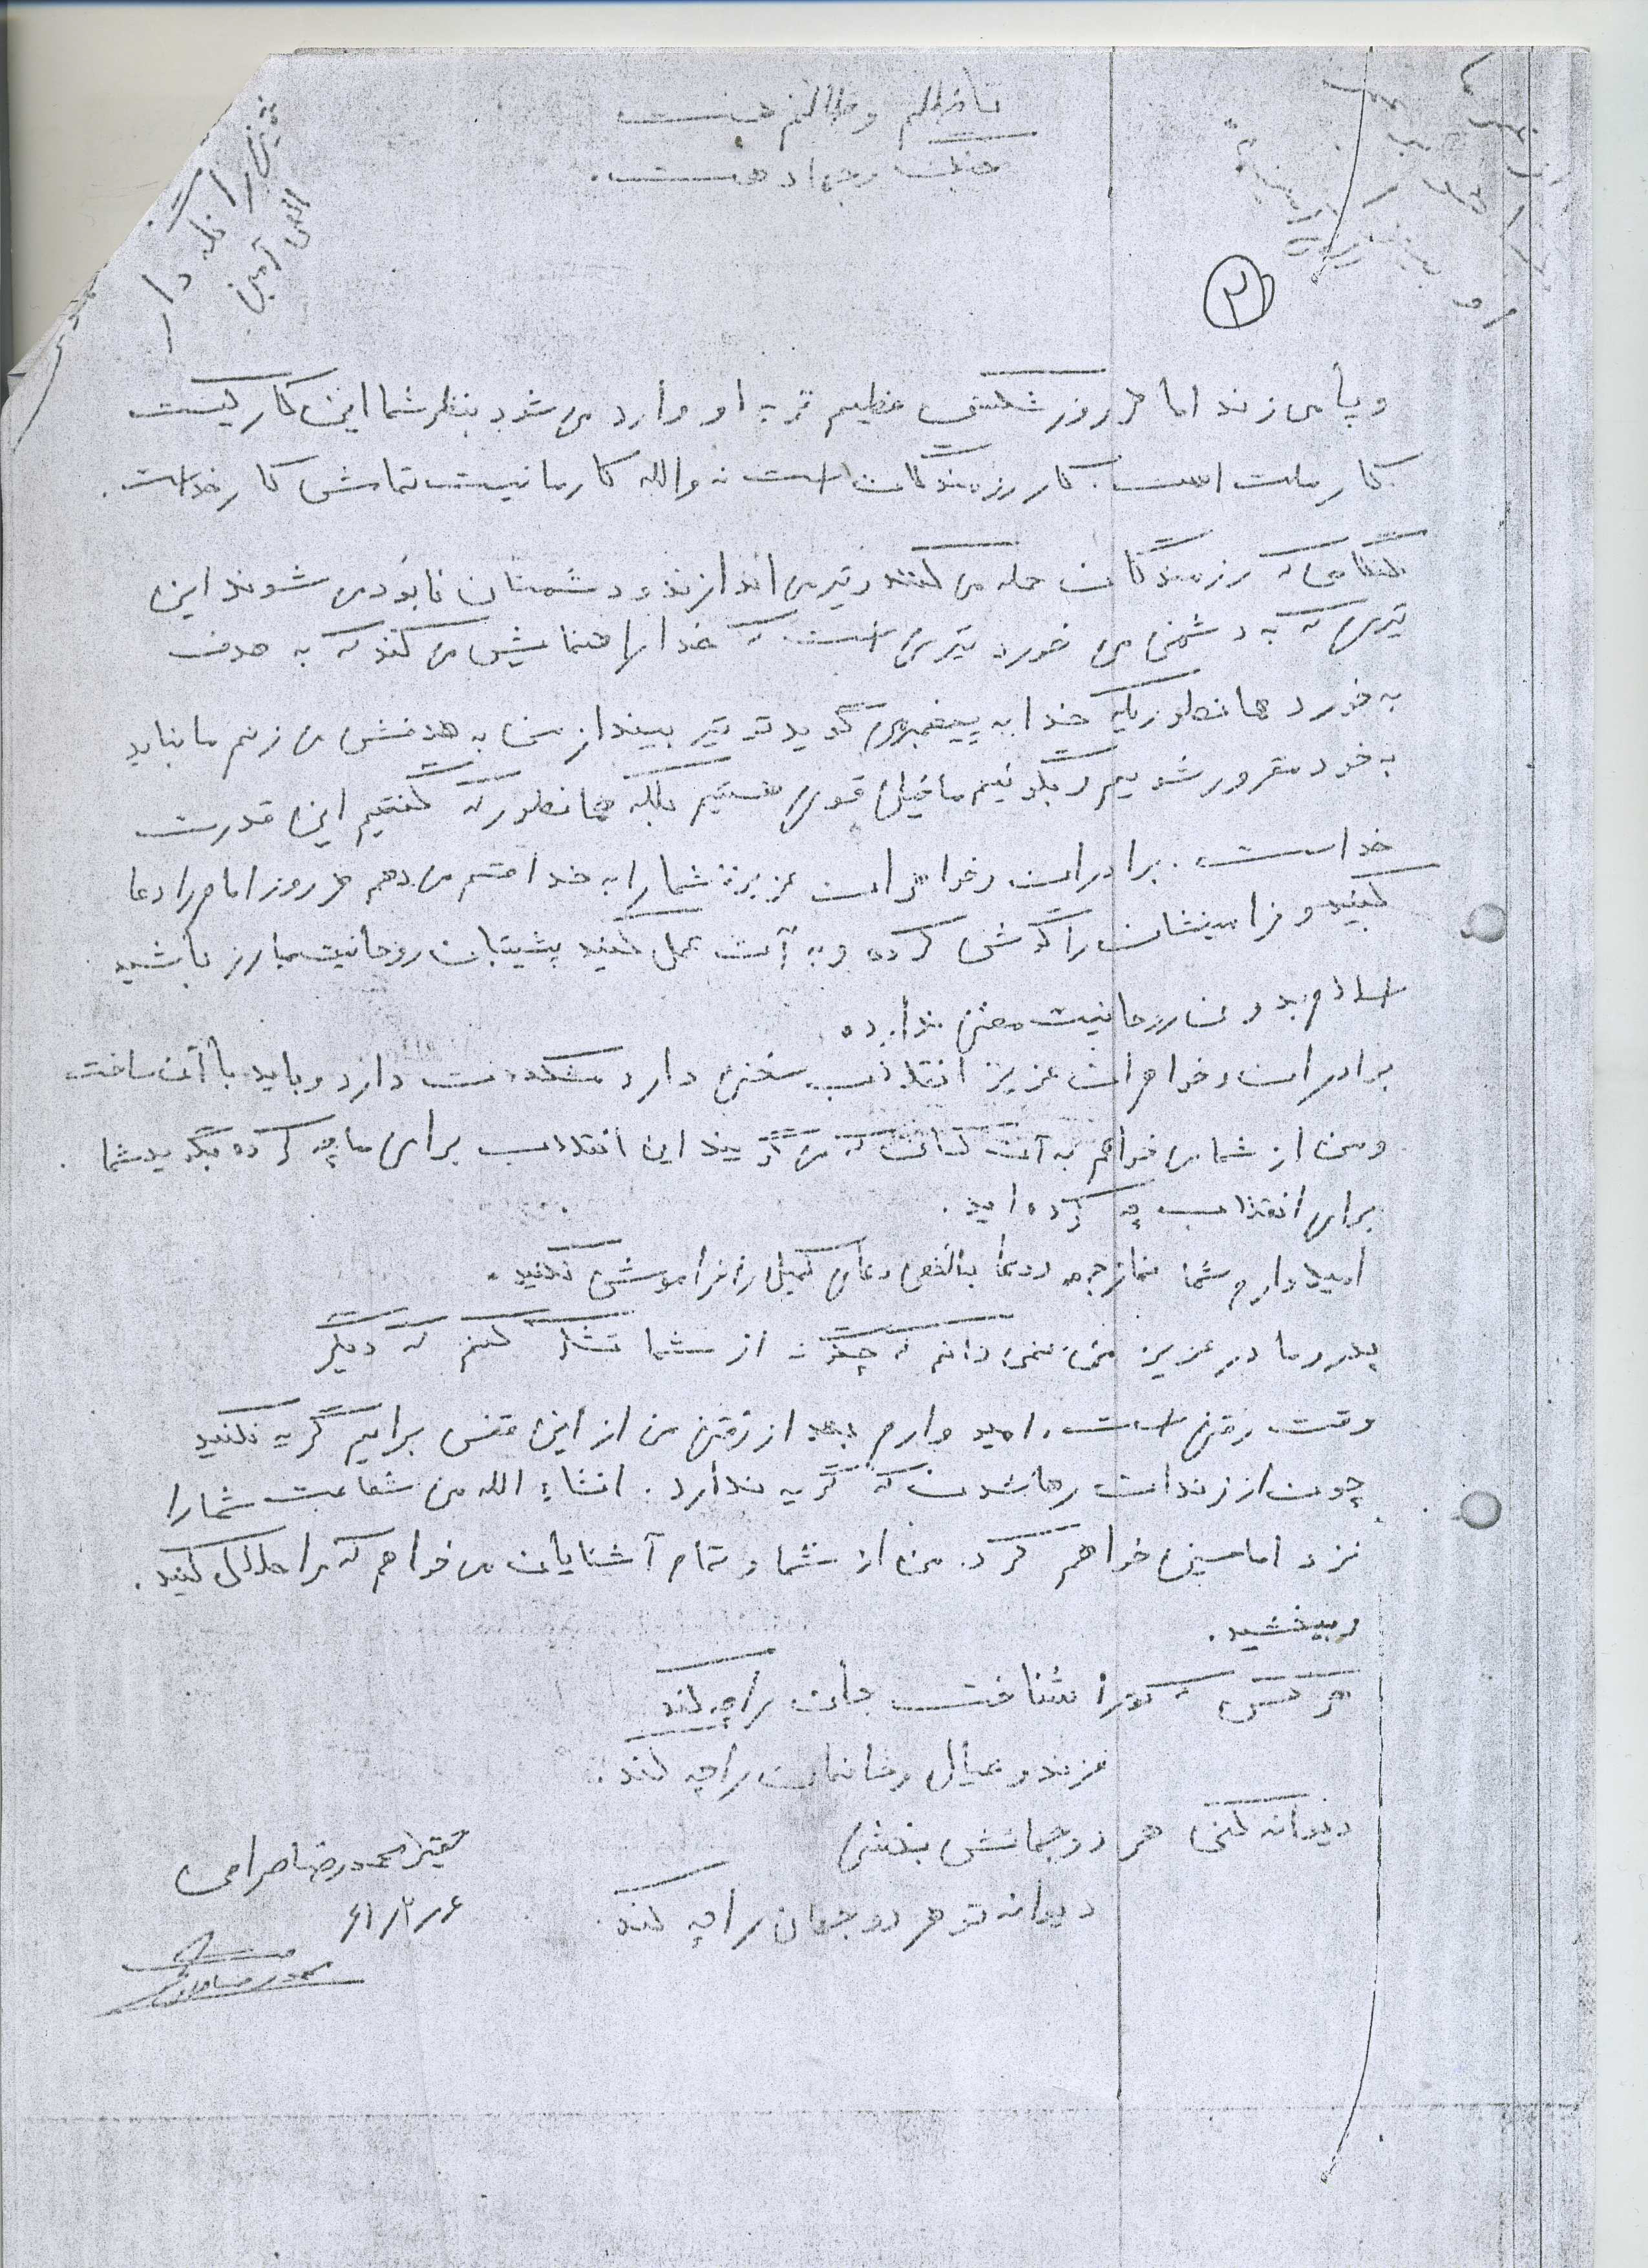 تا ظلم و ظالم هست
جنگ و جهاد هست.
۲
و پا می زند اما هر روز شکستی عظیم تر به او وارد می شود بنظر شما این کار کیست
کار ملت است. کار رزمندگان است نه والله کار ما نیست تمامش کار خداست.
هنگامی که رزمندگان حمله می کنند و تیر می اندازند و دشمنان نابود می شوند این
تیری که به دشمن می خورد تیری است که خدا راهنمایش می کند که به هدف
به خورد همانطوریکه خدا به پیغمبر می گوید تو تیر بینداز من به هدفش می زنم ما نباید
به خود مغرور شویم و بگوئیم ما خیلی قوی هستیم بلکه همانطور که گفتیم این قدرت
خداست. برادران و خواهران عزیز شما را به خدا قسم می دهم هر روز امام را دعا
کنید و فرامینشان را گوش کرده و به آن عمل کنید پشتیبان روحانیت مبارز باشید
اسلام بدون روحانیت معنی ندارد
برادران و خواهران عزیز انقلاب سختی دارد مشکلات دارد و باید با آن ساخت
و من از شما می خواهم به آن کسانی که می گویند این انقلاب برای ما چه کرده بگوید شما
برای انقلاب چه کرده اید.
امیدوارم شما نماز جمعه و دعا بالخص دعای کمیل را فراموش نکنید.
پدر و مادر عزیز من نمی دانم که چگونه از شما تشکر کنم که دیگر
وقت رفتن است. امیدوارم بعد از رفتن من از این قفس برایم گریه نکنید
چون از زندان رها شدن که گریه ندارد. انشاء الله من شفاعت شما را
نزد امام حسین خواهم کرد. من از شما و تمام آشنایان می خواهم که مرا حلال کنید.
و ببخشید.
هر کس که تو را شناخت جان را چه کند
فرزند و عیال و خانمان را چه کند.
دیوانه کنی هر دو جهانش بخشی
دیوانه تو هر دو جهان را چه کند.
حقیر محمدرضا صرامی